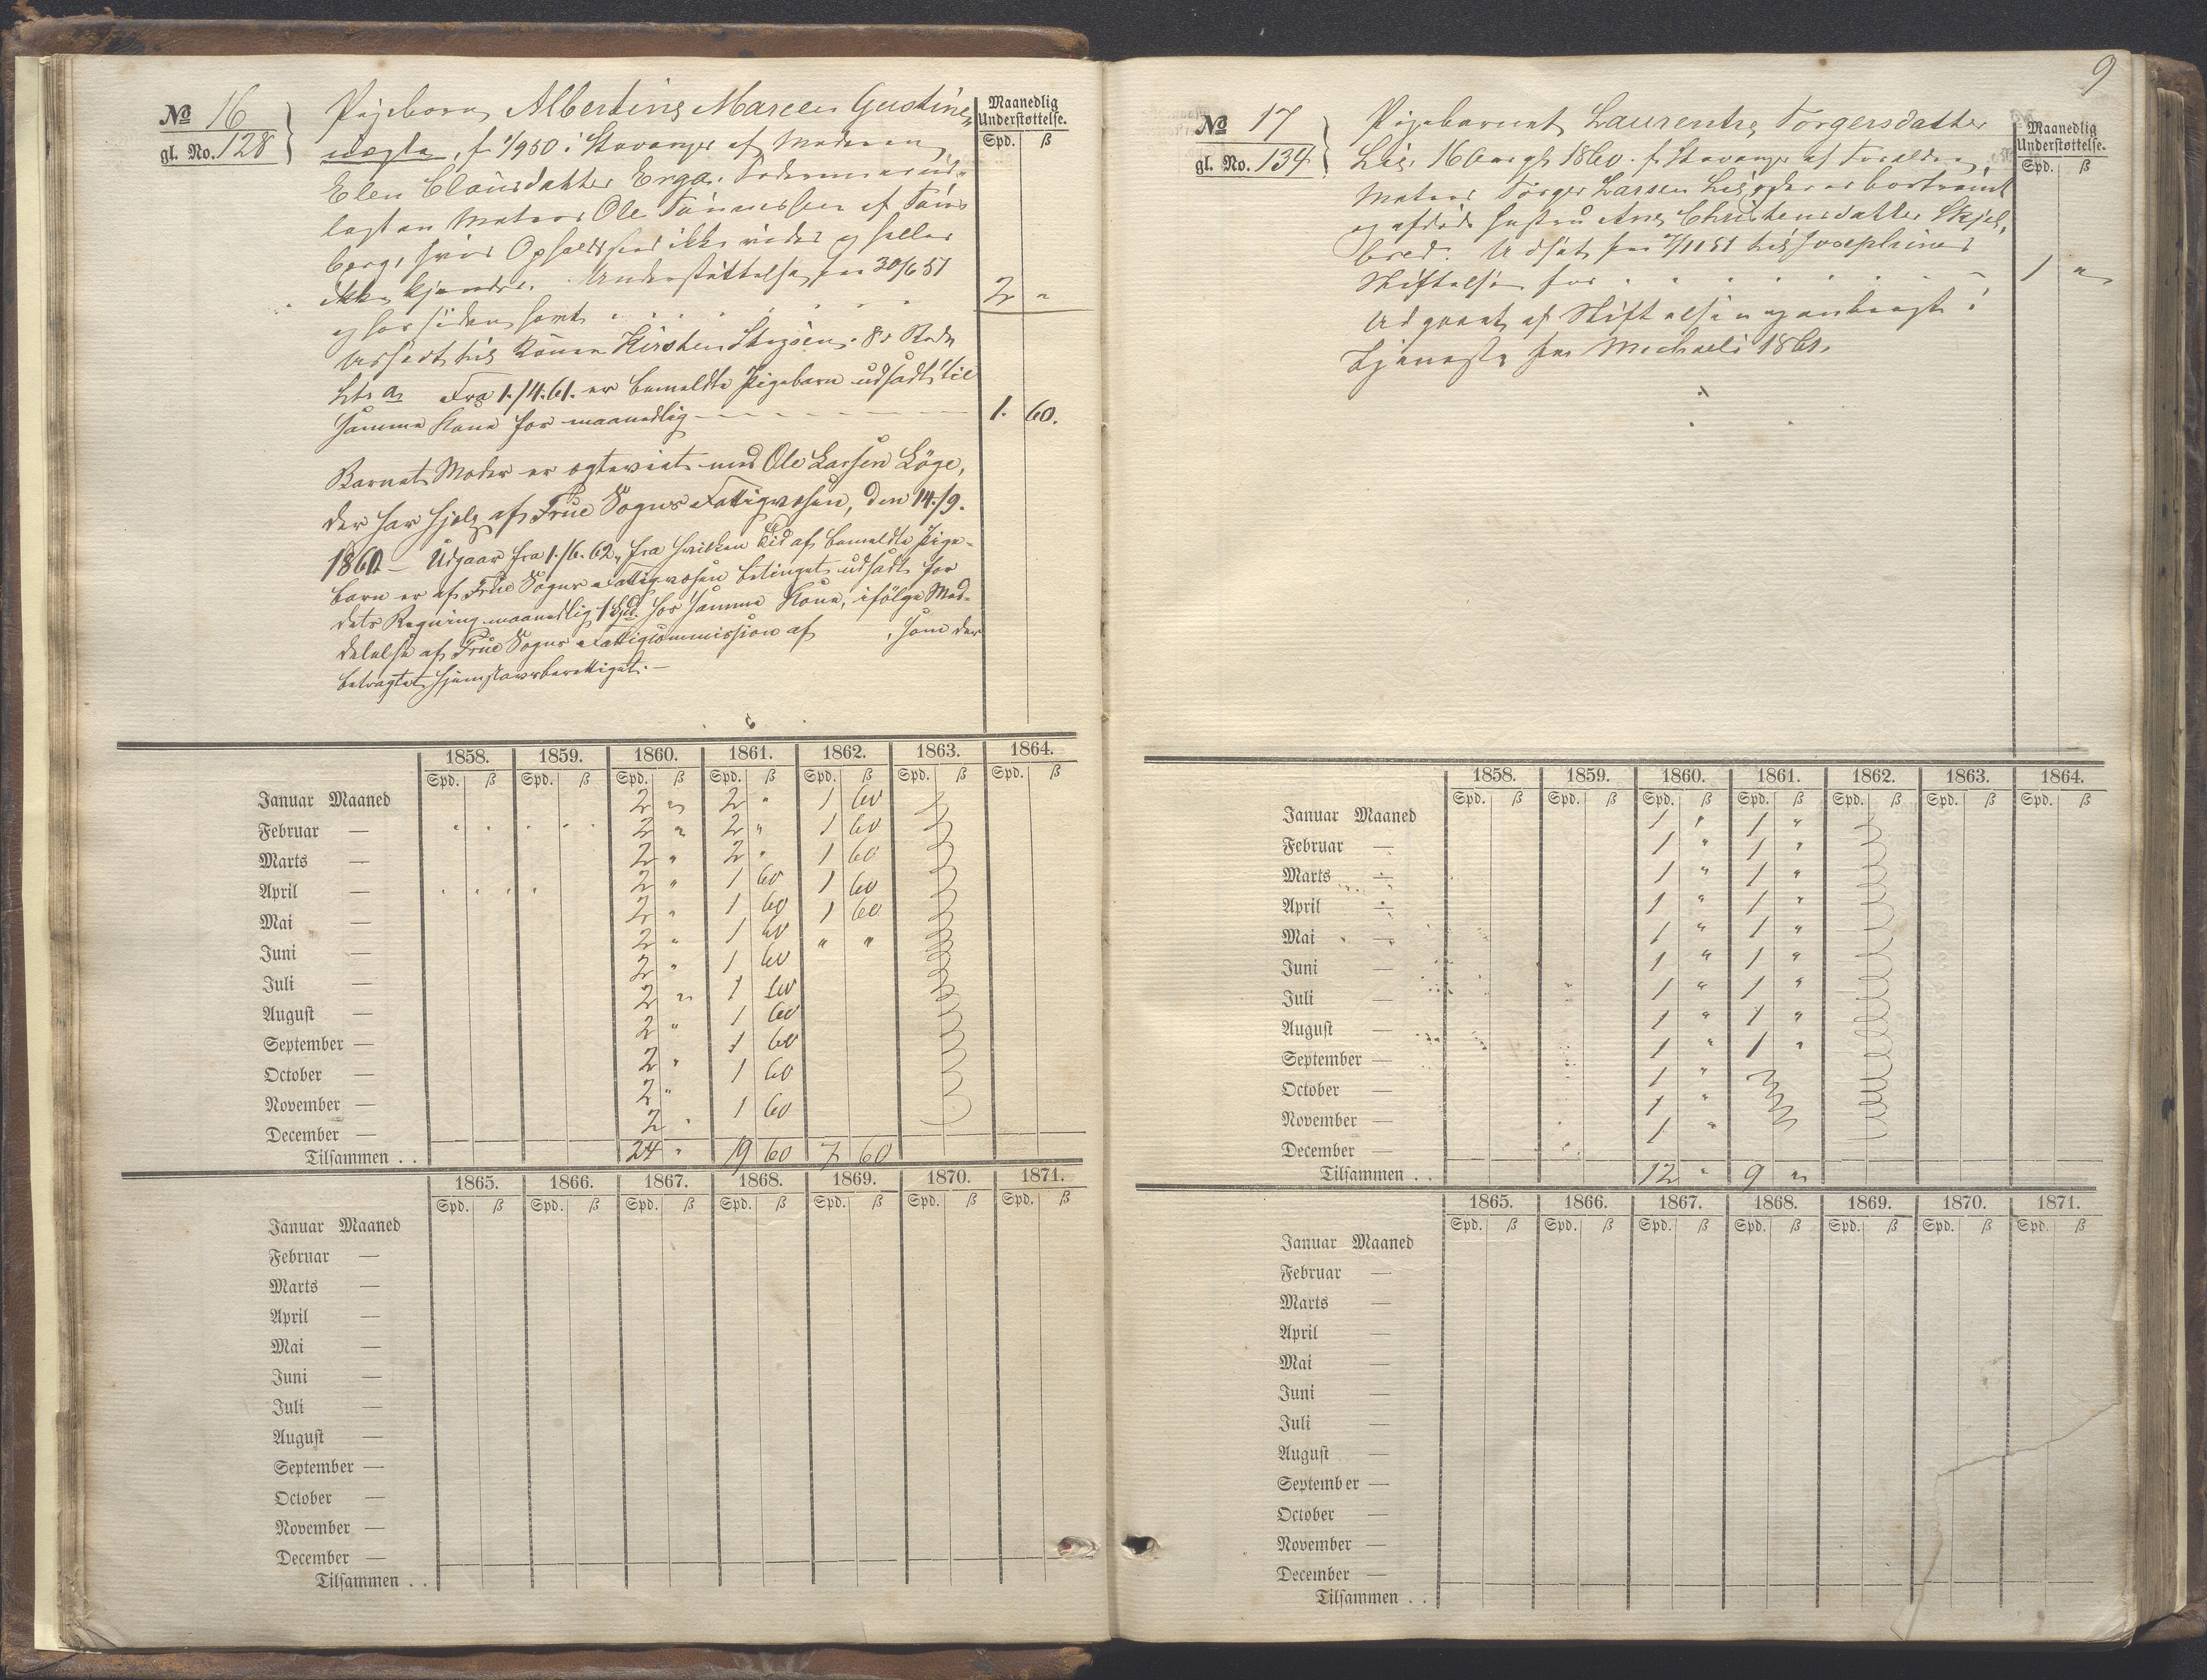 No 16
gl. No. 128
Maanedlig
Understøttelse.
Spd. ß
Pigebarn Albertine Marcie Gustine,
uægte, f. 1/9 50 i Stavanger af Moderen
Elen Clausdatter Erga. Faderen er ud-
lagt en Matros Ole Tønnessen af Tøns
berg, hvis Opholdssted ikke vides og heller
ikke kjendes. Understøttelse fra 30/6 51
og har siden havt . . . . . . 2 "
Udsat til Konen Kirsten 8de Rode
Litr. a. Fra 1./4. 61. er bemeldte Pigebarn udsadt til
samme Kone for maanedlig - - - - - - 1. 60.
Barnets Moder er ægteviet med Ole Larsen Løge,
der har Hjelp af Frue Sogns Fattigvæsen, den 14./9.
1860. — Udgaar fra 1./6. 62, fra hvilken Tid af bemeldte Pige-
barn er af Frue Sogns Fattigvæsen betinget udsadt for
dets Regning maanedlig 1 Spd. hos samme Kone, ifølge Med-
delelse af Frue Sogns Fattigcommission af , som der
betragtet hjemstavnsberettiget. —
1858. 1859. 1860. 1861. 1862. 1863. 1864.
Spd. ß Spd. ß Spd. ß Spd. ß Spd. ß Spd. ß Spd. ß
Januar Maaned 2 " 2 " 1 60
Februar — 2 " 2 " 1 60
Marts — 2 " 2 " 1 60
April — 2 " 1 60 1 60
Mai — 2 " 1 60 1 60
Juni — 2 " 1 60 " "
Juli — 2 " 1 60
August — 2 " 1 60
September — 2 " 1 60
October — 2 " 1 60
November — 2 " 1 60
December — 2 " 1 60
Tilsammen . . 24 " 19 60 7 60
1865. 1866. 1867. 1868. 1869. 1870. 1871.
Spd. ß Spd. ß Spd. ß Spd. ß Spd. ß Spd. ß Spd. ß
Januar Maaned
Februar —
Marts —
April —
Mai —
Juni —
Juli —
August —
September —
October —
November —
December —
Tilsammen . .
9
No 17
gl. No. 134
Maanedlig
Understøttelse.
Spd. ß
Pigebarnet Laurentze Torgersdatter
Lie, 16 Aar gl. 1860. f. Stavanger af Forældre,
Matros Torger Larsen Lie, der er bortrømt
og afdøde Hustru Ane Christensdatter Skjel,
bred. Udsat fra 7/11 51 til Josephines
Stiftelse for . . . . . . 1 "
Udgaaet af Stiftelsen og anbragt i
Tjeneste fra Michaeli 1861.
1858. 1859. 1860. 1861. 1862. 1863. 1864.
Spd. ß Spd. ß Spd. ß Spd. ß Spd. ß Spd. ß Spd. ß
Januar Maaned 1 " 1 "
Februar — 1 " 1 "
Marts — 1 " 1 "
April — 1 " 1 "
Mai — 1 " 1 "
Juni — 1 " 1 "
Juli — 1 " 1 "
August — 1 " 1 "
September — 1 " 1 "
October — 1 "
November — 1 "
December — 1 "
Tilsammen . . 12 " 9 "
1865. 1866. 1867. 1868. 1869. 1870. 1871.
Spd. ß Spd. ß Spd. ß Spd. ß Spd. ß Spd. ß Spd. ß
Januar Maaned
Februar —
Marts —
April —
Mai —
Juni —
Juli —
August —
September —
October —
November —
December —
Tilsammen . .